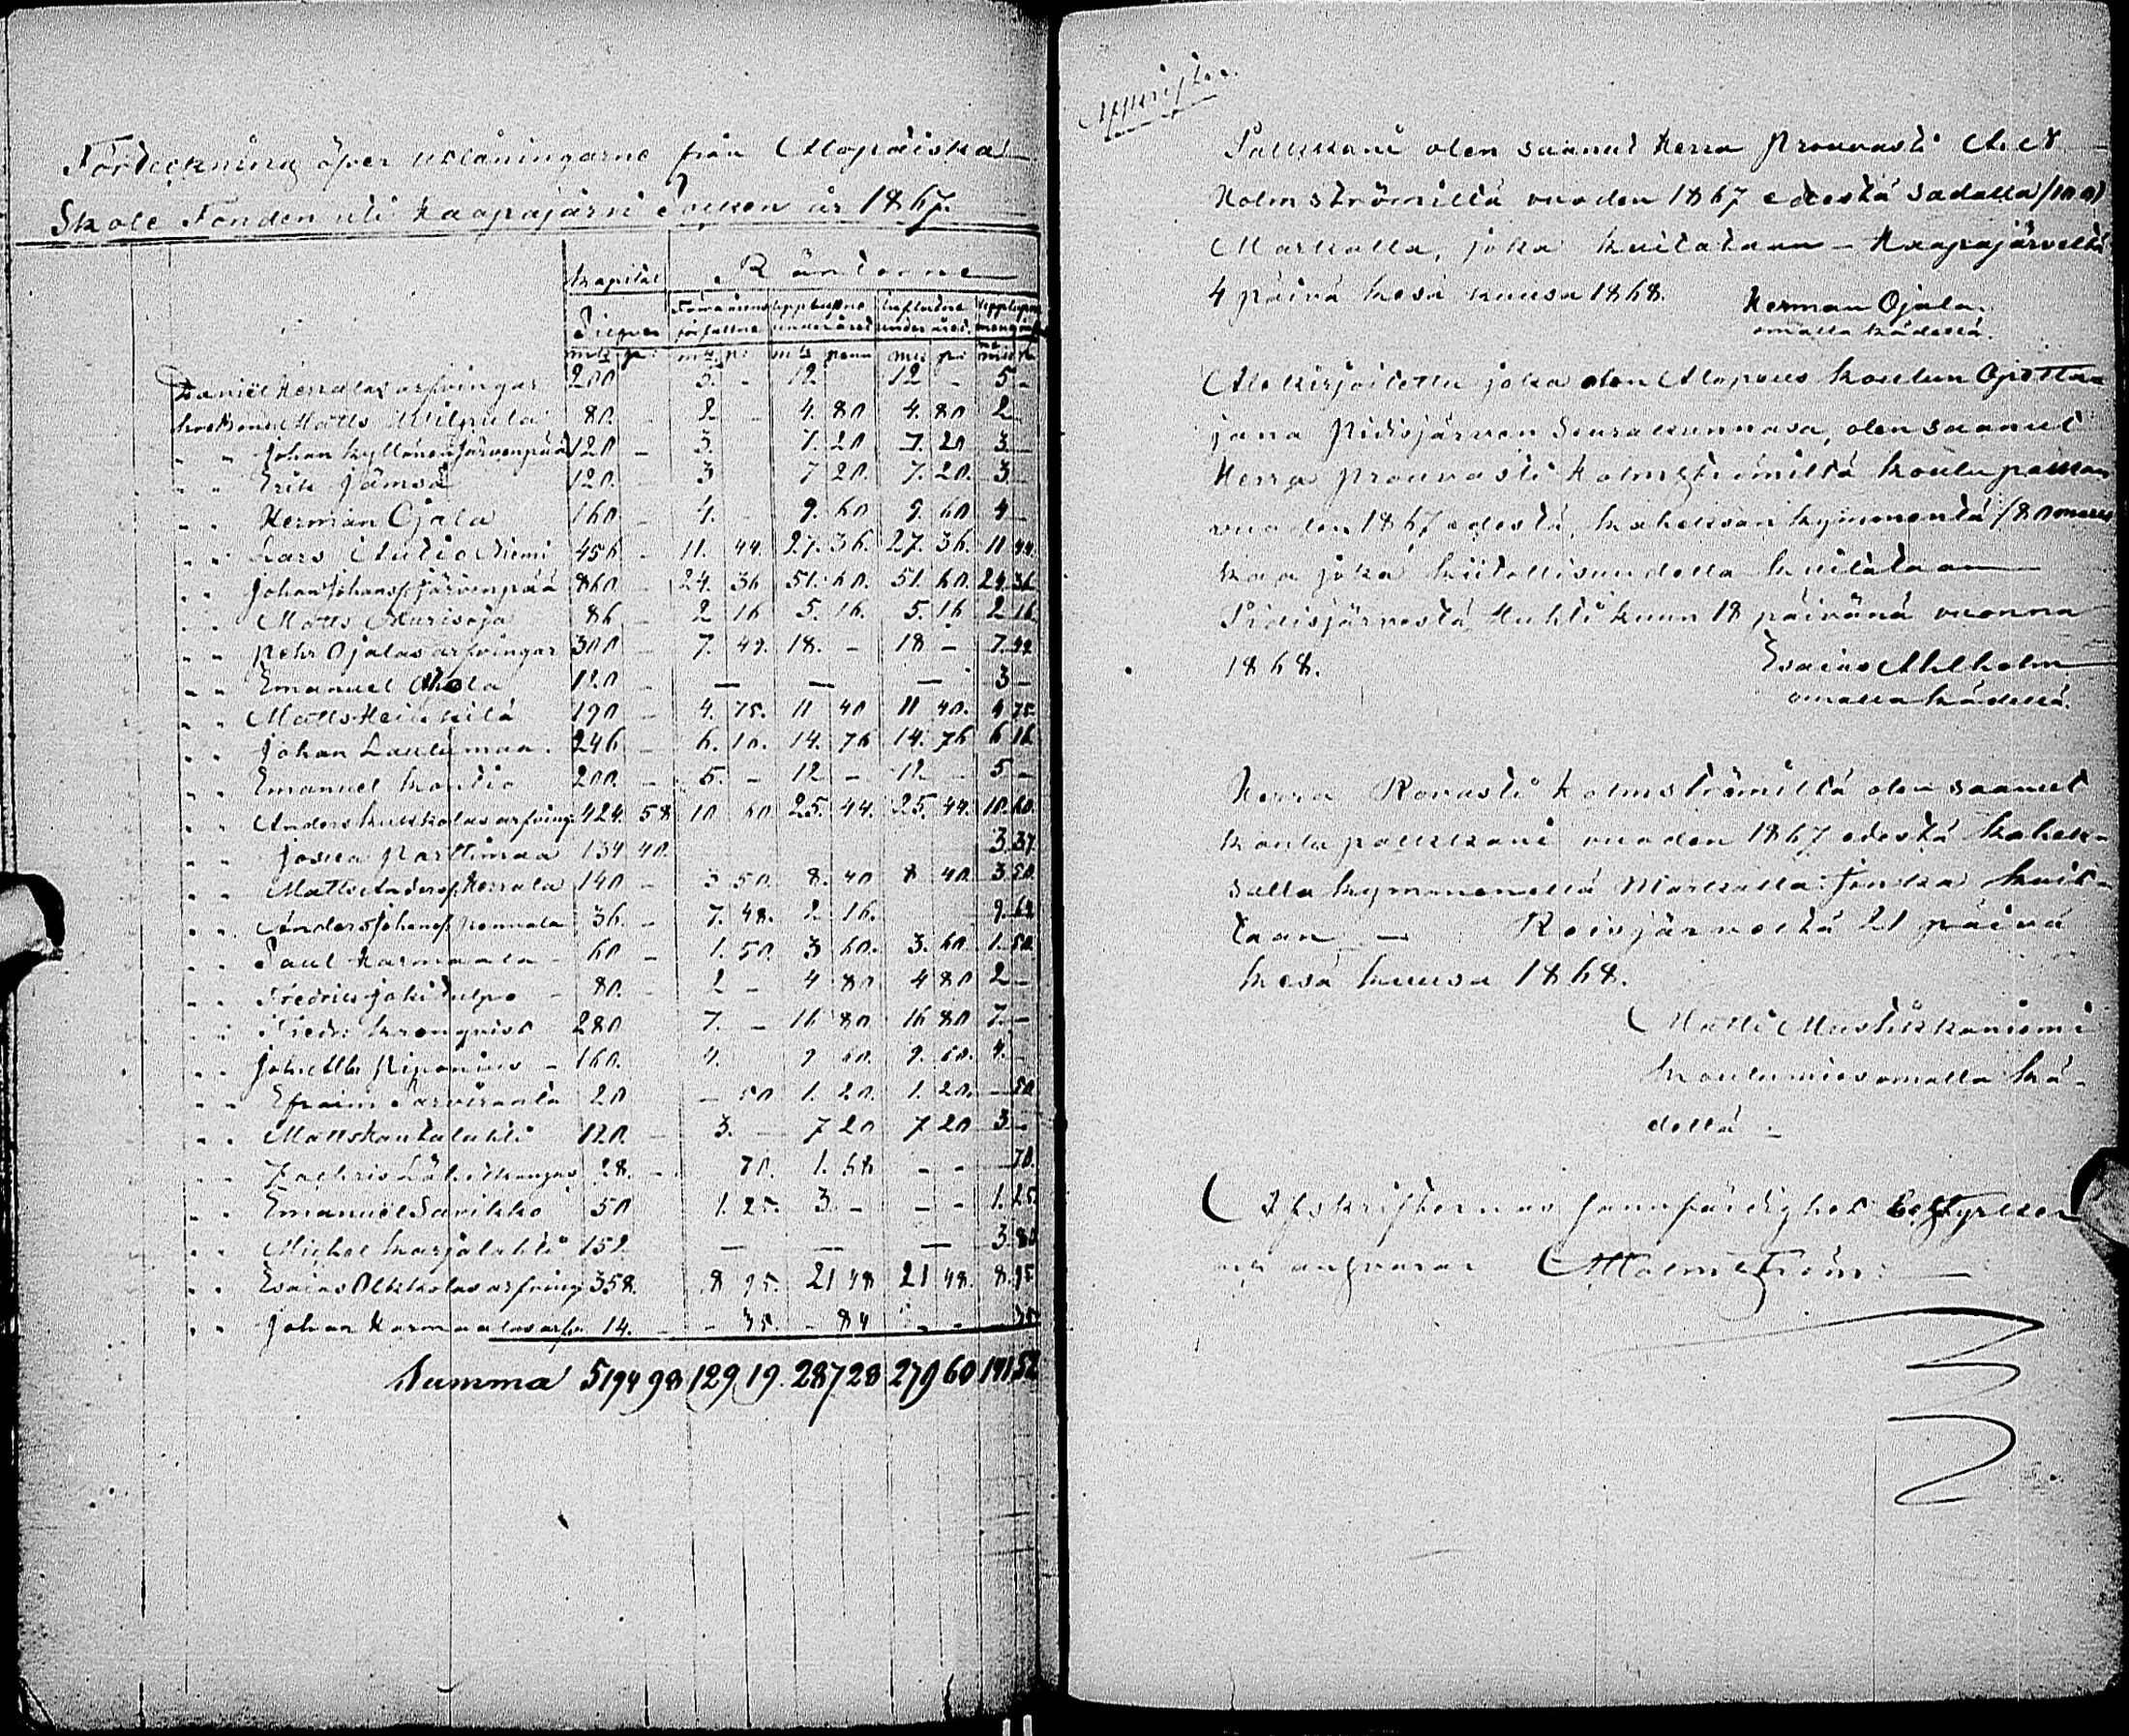 Förteckning öfver utlåningarne från Alopæiska
Skole Fonden uti Haapajärvi Socken år 1867.
Kapital Räntorne
Förra årens förfallne upplupne under året influtne under året
mk pi mk pi mk penn mk pi mk
Daniel Kerralas arfvingar 200 5. - 12. 12 - 5 -
Matts Wilpula 80. - 2 - 4. 80 4. 80 2 -
" " Johan Kyllönen Järvenpää 120 - 3. 7. 20 7. 20 3. -
" " Erik Jämsä 120. 3 7 20. 7. 20. 3. -
" " Herman Ojala 160 - 4. 9. 60 9. 60 4 -
" " Lars Autio Niemi 456 - 11. 44. 27. 36. 27. 36. 11 44.
" " Johan Johanss. Järvenpää 860 - 24. 36 51. 60. 51. 60. 24. 36
" " Matts Kurisoja 86 - 2 16 5. 16. 5. 16 2 16.
" " Pehr Ojalas arfvingar 300 - 7. 49. 18. - 18 - 7. 49.
" " Emanuel 120 - — — — 3 -
" " Matts Heikkilä 190 - 4. 75. 11 40 11 40. 4 75
" " Johan Laulumaa. 246 - 6. 16. 14. 76 14. 76 6 16
" " Emanuel Kontio 200. - 5. - 12 - 12 - 5 -
" " Anders Kukkolas arfving. 424. 58 10 60 25. 44. 25. 44. 10. 60.
" " Josua Parttimaa 134 40. 3. 37.
" " Matts Anderss. Kerrala 140 - 3 50. 8. 40 8 40. 3 50.
" " Anders Johanss. Pennala 36. - 7. 48. 2 16. 9. 64
" " Paul Karmaala - 60 - 1. 50. 3 60. 3. 60. 1. 50.
" " Fredric Jokitulpo - 80. - 2 - 4 80 4 80 2 -
" " Fredr. Kronqvist 280 7. - 16 80 16 80 7. -
" " Joh. Alb. Riponius - 160. 4. 9 60. 9. 60. 4. -
" " Efraim Parviranta 20 - 50 1. 20. 1. 20. - 50
" " Matts Kantalahti 120. - 3. - 7 20 7 20 3 -
" " Zachris 28. - 70. 1. 68 - - 70.
" " Emanuel Savikko 50 1. 25. 3. - - - 1. 25.
" " Michel Karjalahti 152 — — — 3. 80
" " Esaias Olkkolas arfving 358. 8 95. 21 48 21 48. 8. 95
" " Johan Karmaalas arfv. 14. - - 35. - 84 - - 35
Summa 5194 98 129 19. 287 28 279 60 141 52
Palkkani olen saanut Herra Prouvasti A. A
Holmströmiltä vuoden 1867 edestä sadalla /100/
Markalla, joka kuitataan - Haapajärveltä
4 päivä kesä kuusa 1868. Herman Ojala.
omalla kädellä.
Alekirjoitettu joka olen Alopeus koulun Opetta=
jana Pidisjärven Seurakunnasa, olen saanut
Herra prouvasti Holmströmiltä koulu palkkan
vuoden 1867 edestä, kaheksan kymmentä /80
kaa joka kiitollisuudella kuitataan
Pidisjärvestä, Huhti kuun 18 päivänä vuonna
1868. Esaias Ahlholm
omalla kädellä.
Herra Rovasti Holmströmiltä olen saanut
koulu palkkani vuoden 1867 edestä kahek-
salla kymmenellä Markalla: jonka kuit-
taan — Reisjärveltä 21 päivä
kesä kuusa 1868.
Matti Mustikkaniemi
koulumies omalla kä-
dellä -
Afskrifternas sannfärdighet bestyrker
och ansvarar A Holmström.